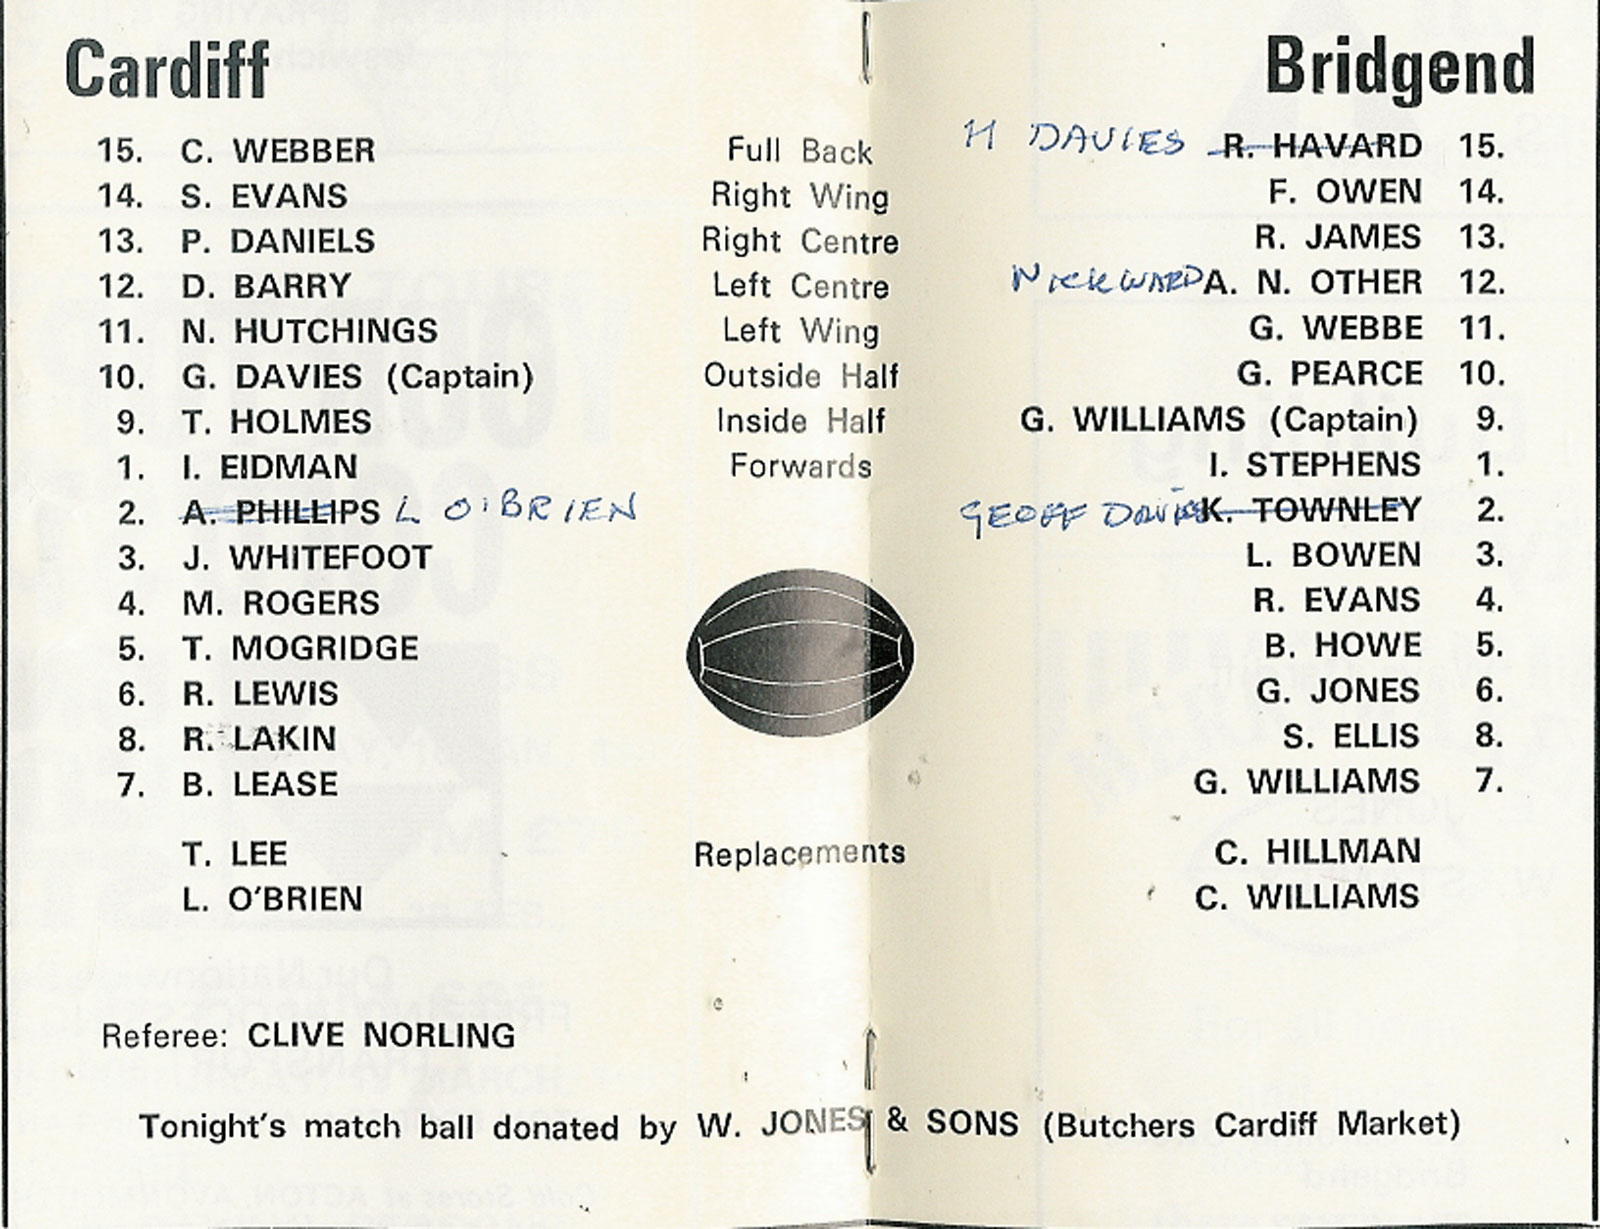 Cardiff Bridgend
15. C. WEBBER Full Back H DAVIES R. HAVARD 15.
14. S. EVANS Right Wing F. OWEN 14.
13. P. DANIELS Right Centre R. JAMES 13.
12. D. BARRY Left Centre NICK WARD A. N. OTHER 12.
11. N. HUTCHINGS Left Wing G. WEBBE 11.
10. G. DAVIES (Captain) Outside Half G. PEARCE 10.
9. T. HOLMES Inside Half G. WILLIAMS (Captain) 9.
1. I. EIDMAN Forwards I. STEPHENS 1.
2. A. PHILLIPS L O'BRIEN GEOFF DAVIES K. TOWNLEY 2.
3. J. WHITEFOOT L. BOWEN 3.
4. M. ROGERS R. EVANS 4.
5. T. MOGRIDGE B. HOWE 5.
6. R. LEWIS G. JONES 6.
8. R. LAKIN S. ELLIS 8.
7. B. LEASE G. WILLIAMS 7.
T. LEE Replacements C. HILLMAN
L. O'BRIEN C. WILLIAMS
Referee: CLIVE NORLING
Tonight's match ball donated by W. JONES & SONS (Butchers Cardiff Market)